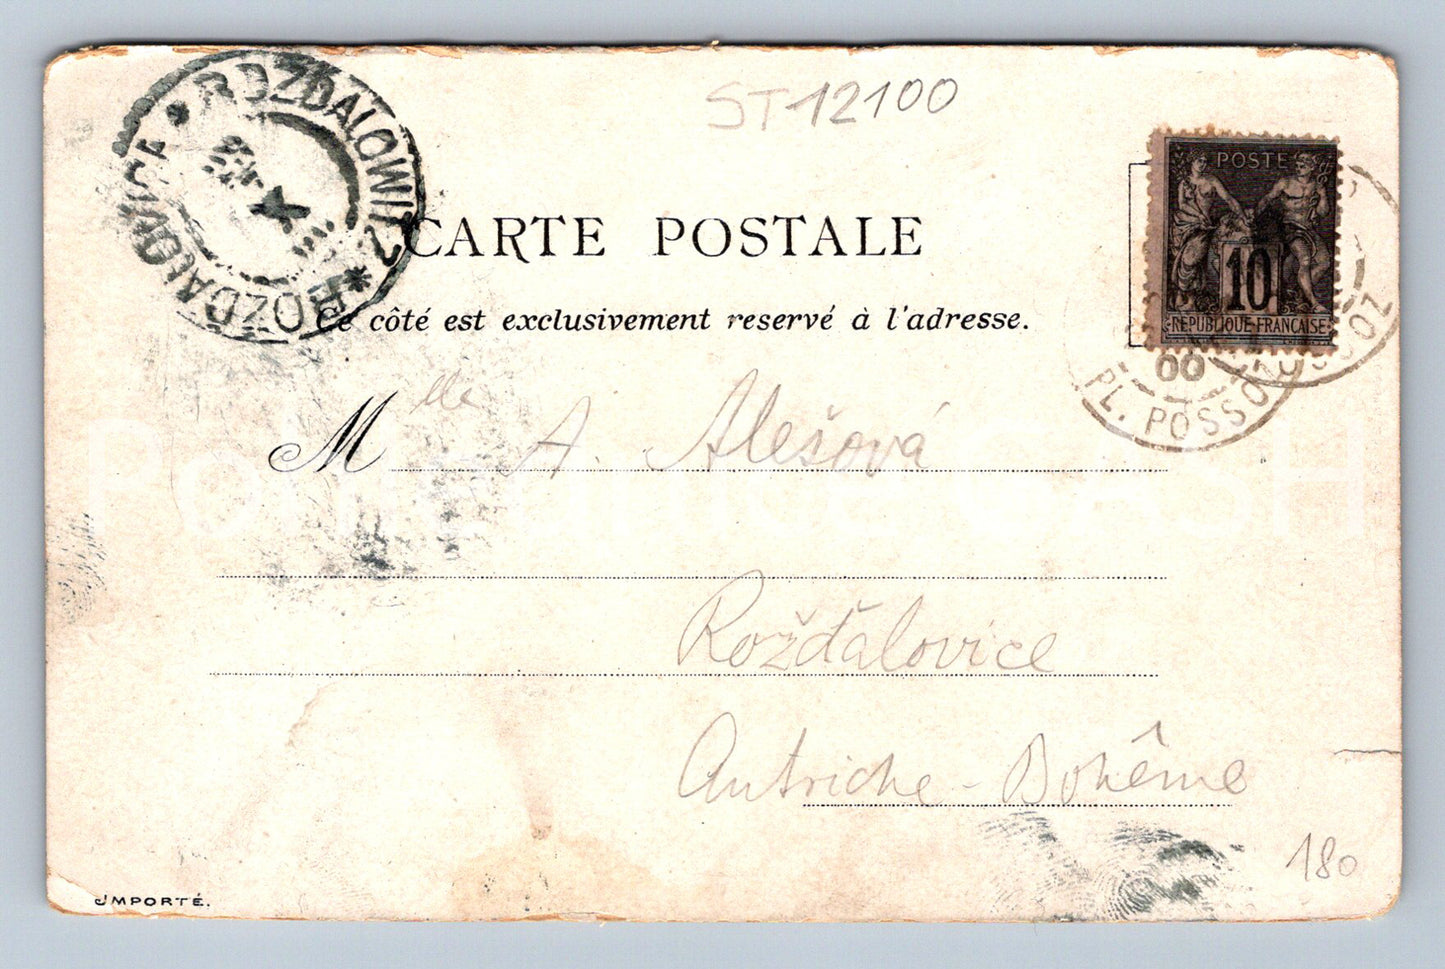 ST 12100
* ROZDALOWITZ * ROŽĎALOVICE
POSTE
10
REPUBLIQUE FRANÇAISE
CARTE POSTALE
Ce côté est exclusivement reservé à l'adresse.
00
PL. POSSOZ
Mlle A. Alešová
Rožďalovice
Autriche - Bohême
180
IMPORTÉ.